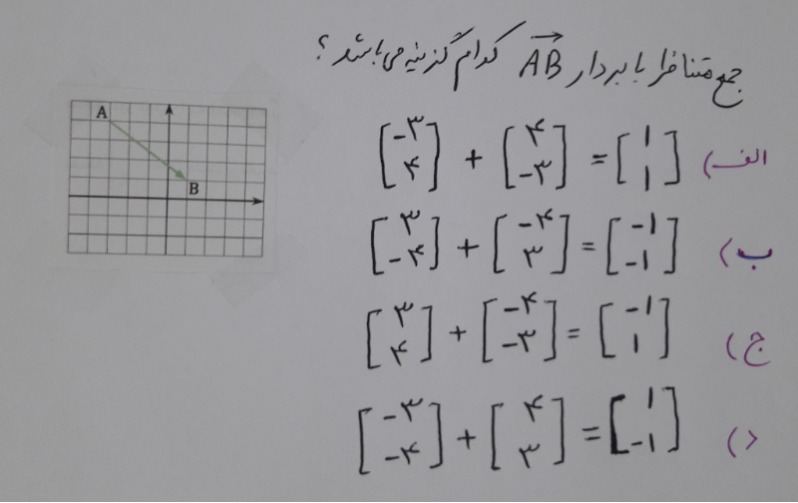 جمع متناظر با بردار AB کدام گزینه می باشد؟
الف) [-۳ ۴] + [۴ -۳] = [۱ ۱]
ب) [۳ -۴] + [-۴ ۳] = [-۱ -۱]
ج) [۳ ۴] + [-۴ -۳] = [-۱ ۱]
د) [-۳ -۴] + [۴ ۳] = [۱ -۱]
A
B